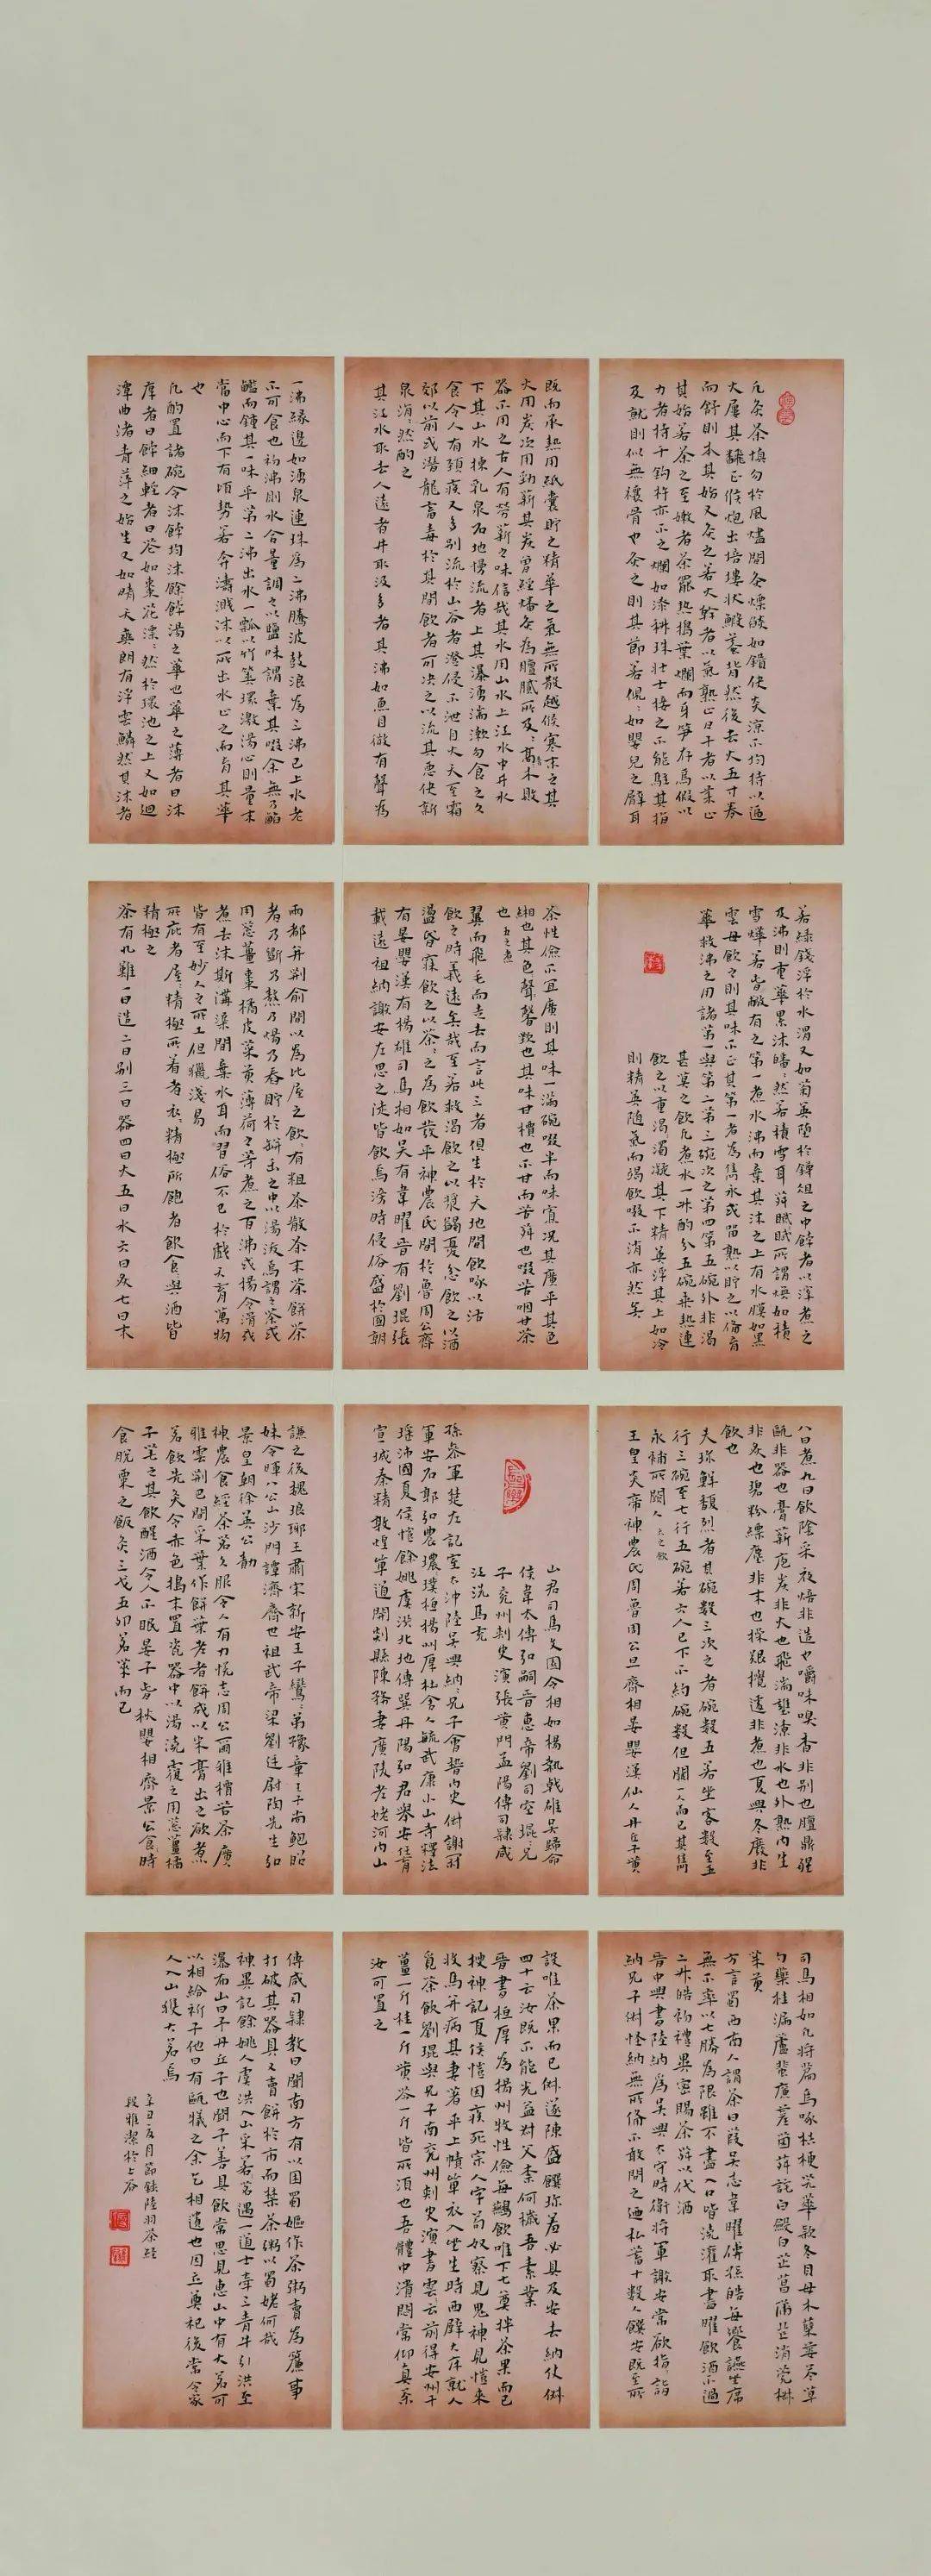 凡炙茶慎勿於風燼間炙熛焰如鑽使炎涼不均持以逼
火屢其翻正候炮出培塿狀蝦蟇背然後去火五寸卷
而舒則本其始又炙之若火幹者以氣熟止日干者以柔止
其始若茶之至嫩者茶罷熱搗葉爛而牙筍存焉假以
力者持千鈞杵亦不之爛如漆科珠壯士接之不能駐其指
及就則似無禳骨也炙之則其節若倪：如嬰兒之臂耳
既而承熱用紙囊貯之精華之氣無所散越候寒末之其
火用炭次用勁薪其炭曾經燔炙為膻膩所及：膏木敗
器不用之古人有勞薪之味信哉其水用山水上江水中井水
下其山水揀乳泉石地慢流者上其瀑湧湍漱勿食之久
食令人有頸疾又多別流於山谷者澄侵不泄自火天至霜
郊以前或潛龍畜毒於其間飲者可決之以流其惡使新
泉涓：然酌之
其江水取去人遠者井取汲多者其沸如魚目微有聲為
一沸緣邊如湧泉連珠為二沸騰波鼓浪為三沸已上水老
不可食也初沸則水合量調之以鹽味謂棄其啜余無乃䶢
䶣而鐘其一味乎第二沸出水一瓢以竹筴環激湯心則量末
當中心而下有頃勢若奔濤濺沫以所出水止之而育其華
也
凡酌置諸碗令沫餑均沫餑餑湯之華也華之薄者曰沫
厚者曰餑細輕者曰花如棗花漂：然於環池之上又如迴
潭曲渚青萍之始生又如晴天爽朗有浮雲鱗然其沫者
若綠錢浮於水渭又如菊英墮於鐏俎之中餑者以滓煮之
及沸則重華累沫皤：然若積雪耳荈賦所謂煥如積
雪燁若春敷有之第一煮水沸而棄其沫之上有水膜如黑
雲母飲之則其味不正其第一者為雋永或留熟以貯之以備育
華救沸之用諸第一與第二第三碗次之第四第五碗外非渴
甚莫之飲凡煮水一升酌分五碗乘熱連
飲之以重濁凝其下精英浮其上如冷
則精英隨氣而竭飲啜不消亦然矣
茶性儉不宜廣則其味一滿碗啜半而味寡況其廣乎其色
緗也其馨也其味甘檟也不甘而苦荈也啜苦咽甘茶
也五之煮
翼而飛毛而走去而言此三者俱生於天地間飲啄以活
飲之時義遠矣哉至若救渴飲之以漿蠲憂忿飲之以酒
盪昏寐飲之以茶：之為飲發乎神農氏聞於魯周公齊
有晏嬰漢有楊雄司馬相如吳有韋曜晉有劉琨張
載遠祖納謝安左思之徒皆飲焉滂時侵俗盛於國朝
兩都并荊俞間以為比屋之飲有粗茶散茶末茶餅茶
者乃斷乃熬乃煬乃舂貯於缾缶之中以湯沃焉謂之茶或
用蔥薑棗橘皮茱萸薄荷之等煮之百沸或揚令滑或
煮去沫斯溝渠間棄水耳而習俗不已於戲天育萬物
皆有至妙人之所工但獵淺易
所庇者屋：精極所著者衣：精極所飽者飲食：與酒皆
精極之
茶有九難一曰造二曰別三曰器四曰火五曰水六曰炙七曰末
八曰煮九曰飲陰采夜焙非造也嚼味嗅香非別也膻鼎腥
甌非器也膏薪庖炭非火也飛湍壅潦非水也外熟內生
非炙也碧粉縹塵非末也操艱攪遽非煮也夏興冬廢非
飲也
夫珍鮮馥烈者其碗數三次之者碗數五若坐客數至五
行三碗至七行五碗若六人已下不約碗數但闕一人而已其雋
永補所闕人六之飲
王皇炎帝神農氏周魯周公旦齊相晏嬰漢仙人丹丘子黃
山君司馬文園令相如楊執戟雄吳歸命
侯韋太傅弘嗣晉惠帝劉司空琨：兄
子兗州刺史演張黃門孟陽傅司隸咸
江洗馬充
孫參軍楚左記室太沖陸吳興納：兄子會稽內史俶謝冠
軍安石郭弘農璞桓揚州厚杜舍人毓武康小山寺釋法
瑤沛國夏侯愷餘姚虞洪北地傅巽丹陽弘君舉安任育
宣城秦精敦煌單道開剡縣陳務妻廣陵老姥河內山
謙之後魏瑯琊王肅宋新安王子鸞：弟豫章王子尚鮑昭
妹令暉八公山沙門譚濟齊世祖武帝梁劉廷尉陶先生弘
景皇朝徐英公勣
神農食經茶茗久服令人有力悅志周公爾雅檟苦茶廣
雅雲荊巴間采葉作餅葉老者餅成以米膏出之欲煮
茗飲先炙令赤色搗末置瓷器中以湯澆覆之用蔥薑橘
子芼之其飲醒酒令人不眠晏子春秋嬰相齊景公食時
食脫粟之飯炙三戈五卯茗萊而已
司馬相如凡將篇烏啄桔梗芫華款冬貝母木蘗蔞芩草
勺藥桂漏蘆蜚廉雚菌荈詫白斂白芷菖蒲芒消莞椒
茱萸
方言蜀西南人謂茶曰葭吳志韋曜傳孫皓每饗讌坐席
無不率以七勝為限雖不盡入口皆澆灌取盡曜飲酒不過
二升皓初禮異密賜茶荈以代酒
晉中興書陸納為吳興太守時衛將軍謝安常欲指詣
納兄子俶怪納無所備不敢問之迺私蓄十數人饌安既至所
設唯茶果而已俶遂陳盛饌珍羞必具及安去納仗俶
四十云汝既不能光益叔父柰何穢吾素業
晉書桓厚為揚州牧性儉每讌飲唯下七奠拌茶果而已
搜神記夏侯愷因疾死宗人字茍奴察見鬼神見愷來
收馬并病其妻著平上幘單衣入坐生時西壁大床就人
覓茶飲劉琨與兄子南兗州刺史演書雲云前得安州干
薑一斤桂一斤黃芩一斤皆所須也吾體中潰悶常仰真茶
汝可置之
傅咸司隸教曰聞南方有以困蜀嫗作茶粥賣為簾事
打破其器具又賣餅於市而禁茶粥以蜀姥何哉
神異記餘姚人虞洪入山采茗遇一道士牽三青牛引洪至
瀑布山曰予丹丘子也聞子善具飲常思見惠山中有大茗可
以相給祈子他日有甌犧之余乞相遺也因立奠祀後常令家
人入山獲大茗焉
辛丑年月節錄陸羽茶經
段雅潔於上谷